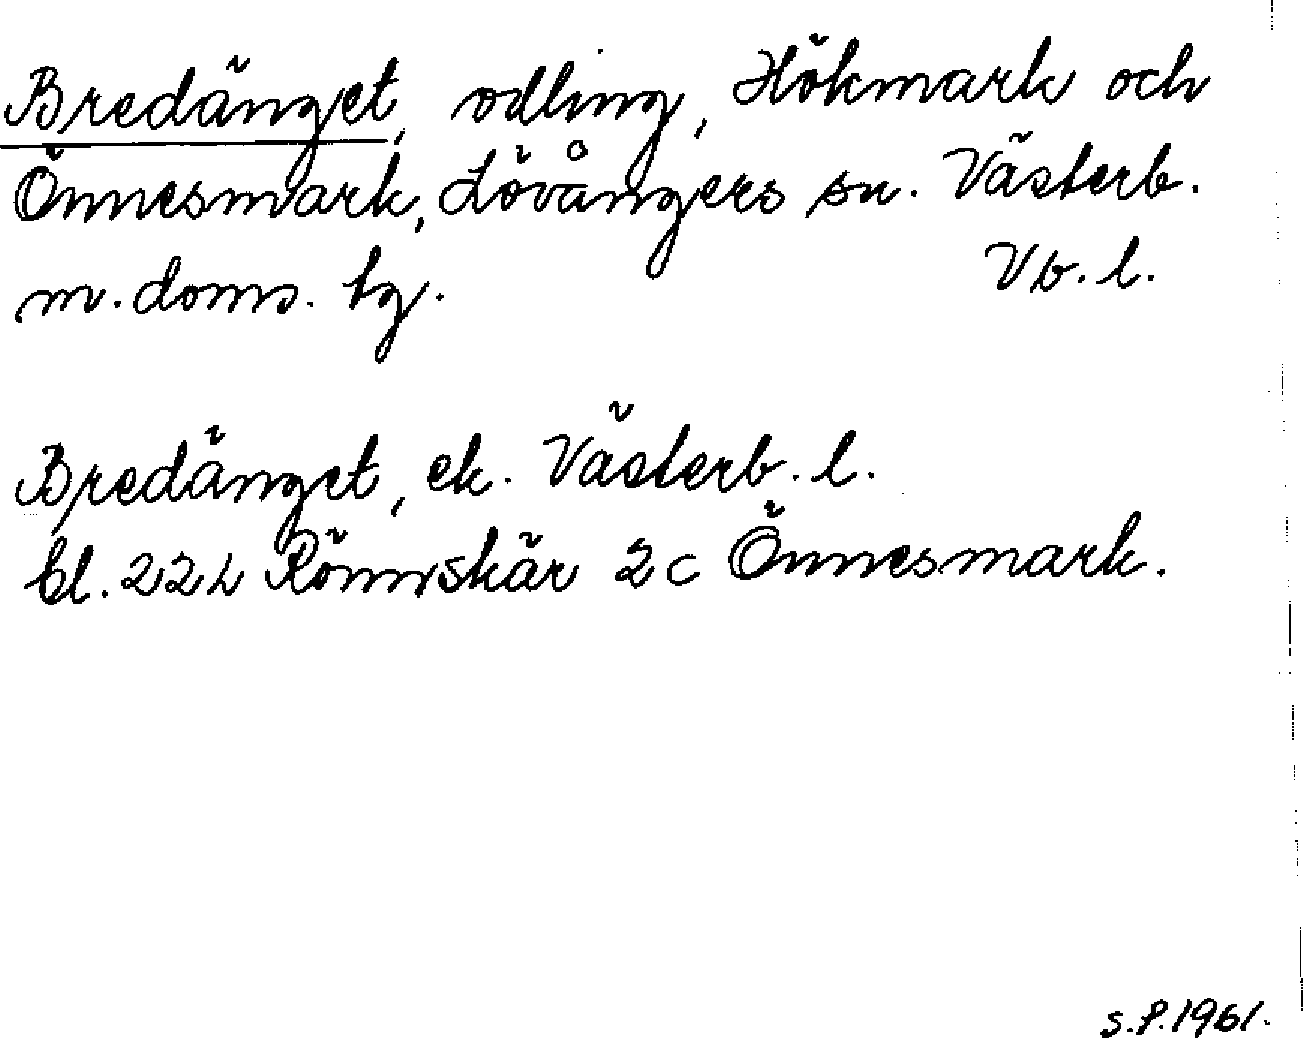 Bredänget, odling, Hökmark och
Önnesmark, Lövångers sn. Västerb.
m. doms. tg. Vb. l.
Bredänget, ek. Västerb. l.
bl. 22 L Rönnskär 2c Önnesmark.
S.P. 1961.